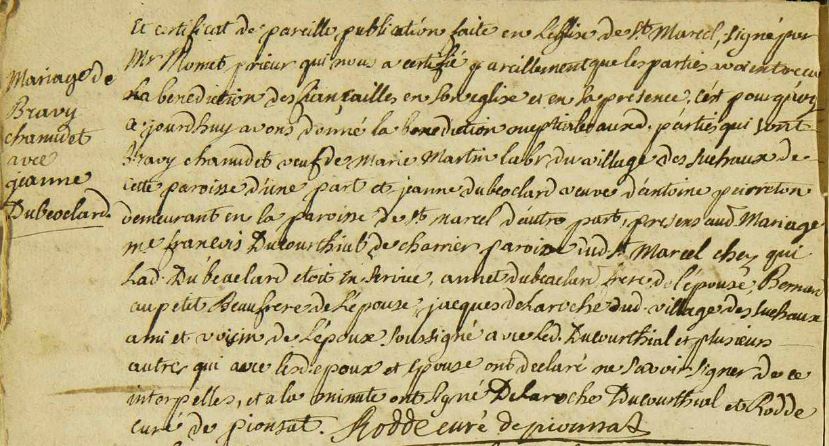 Et certificat de pareille publication faite en L'eglise de St Marcel, signé par
Mr Momet prieur qui nous a certifié pareillement que les parties avoient recu
La benediction des fiançailles en son eglise et en sa presence, C'est pourquoy
a jourdhuy avons donné la benediction nuptiale aux d. parties qui sont
Bravy chanudet veuf de Marie Martin lab.r du village des Suchaux de
Cette paroisse d'une part et jeanne dubeoclard veuve d'antoine peirreton
demeurant en la paroisse de St marcel d'autre part, presens aud. Mariage
me francois Ducourthial de charrier paroisse dud St Marcel chez qui
Lad. Dubeaclard etoit en service, annet dubeaclard frere de l'épouse, Bernard
aupetit Beaufrere de L'épouse, jacques de Laroche dud. village des Suchaux
ami et voisin de L'époux soussigné avec led. Ducourthial et plusieurs
autres qui avec lesd epoux et epouse ont declaré ne savoir signer de ce
interpelles, et a la minute ont signé DeLaroche Ducourthial et Rodde
curé de pionsat. Rodde curé de pionsat
Mariage de
Bravy
chanudet
avec
jeanne
Dubeoclard.